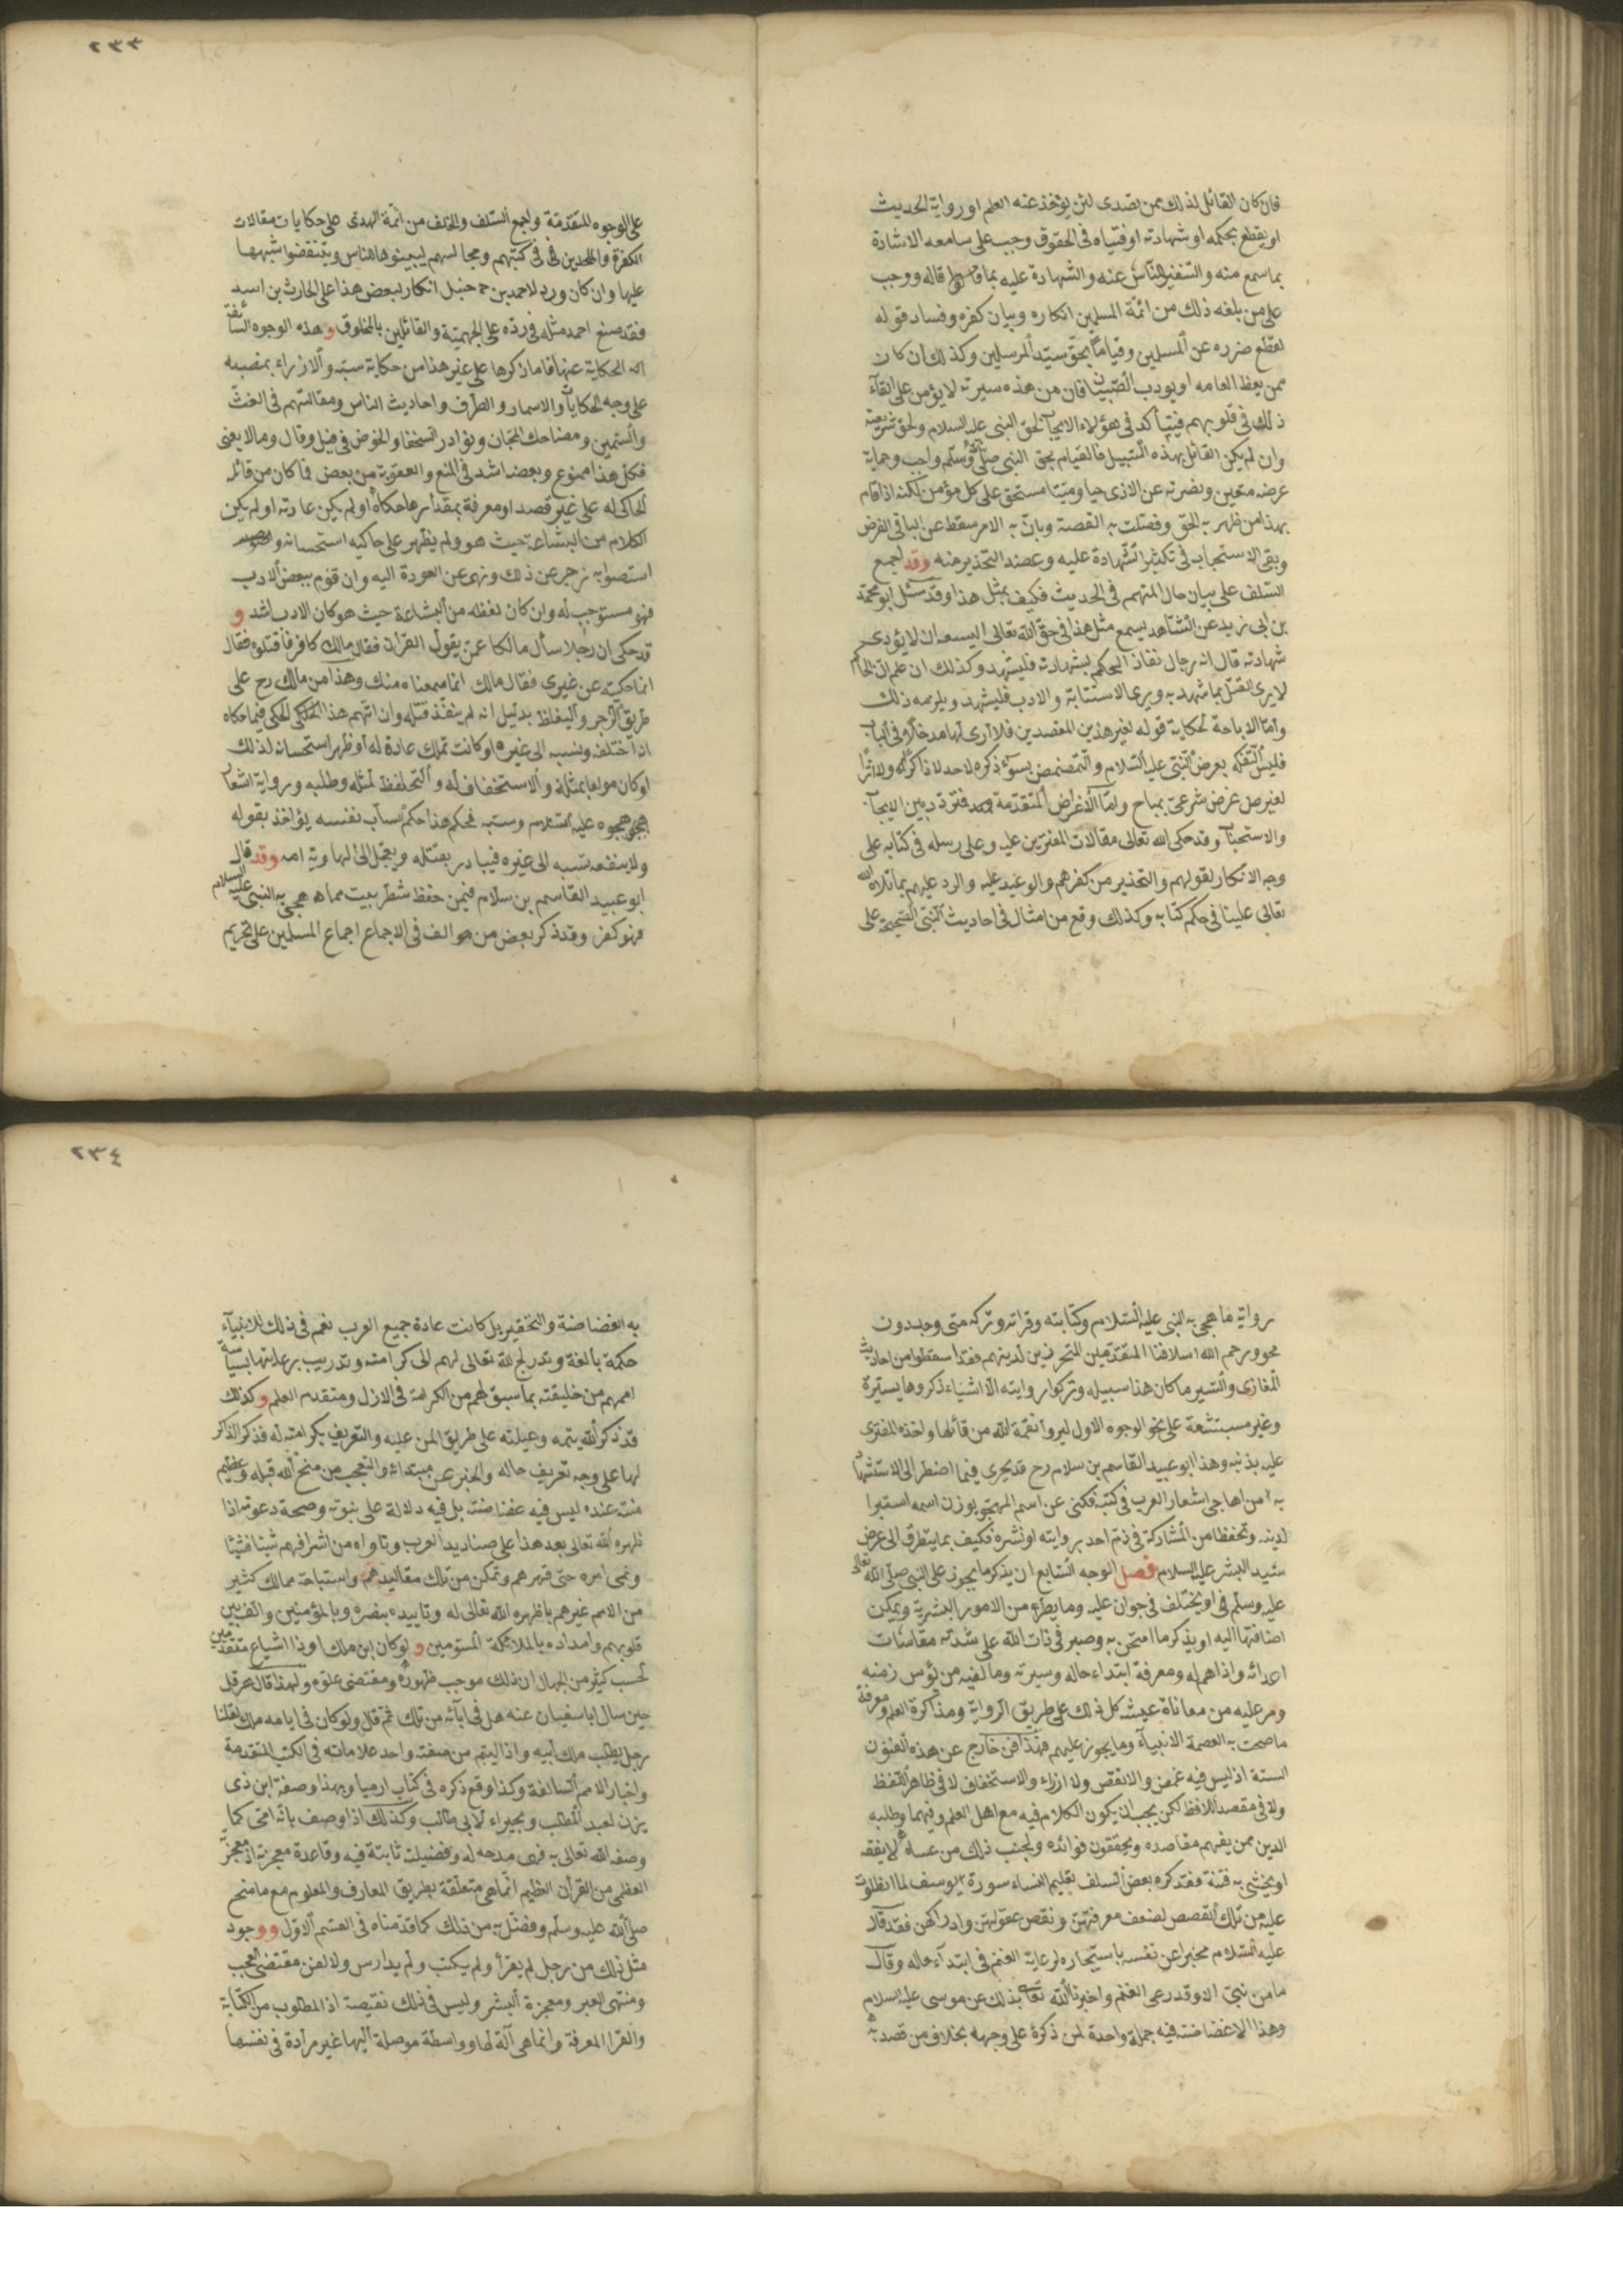 ٢٣٣
فان كان القائل لذلك ممن تصدى لئن يؤخذ عنه العلم او رواية الحديث
او يقطع بحكمه او شهادته او فتياه فى الحقوق وجب على سامعه الاشادة
بما سمع منه والتنفير للناس عنه والشهادة عليه بما قاله ووجب
على من بلغه ذلك من ائمة المسلمين انكاره وبيان كفره وفساد قوله
لقطع ضرره عن المسلمين وقياما بحق سيّد المرسلين وكذلك ان كان
ممن يعظ العامه او يودب الصبيان فان من هذه سيرته لا يؤمن على القآء
ذلك فى قلوبهم فيتأكد فى هؤلاء الايجاب لحق النبى عليه السلام ولحق شريعته
وان لم يكن القائل بهذه السبيل فالقيام بحق النبى صلى وسلم واجب وحماية
عرضه متعين ونصرته عن الاذى حيا وميّتا مستحق على كل مؤمن لكنه اذا قام
بهذا من ظهر به الحق وفصلت به القصة وبان به الامر سقط عن الباقى الفرض
وبقى الاستحباب فى تكثير الشهادة عليه وعضد التحذير منه وقد اجمع
السّلف على بيان حال المتهم فى الحديث فكيف بمثل هذا وقد سئل ابو محمّد
بن ابى زيد عن الشاهد يسمع مثل هذا فى حق الله تعالى ايسعه ان لا يؤدى
شهادته قال ان رجال نفاذ الحكم بشهادته فليشهد وكذلك ان علم ان الحاكم
لا يرى القتل بما شهد به ويرى الاستتابة والادب فليشهد ويلزمه ذلك
وامّا الاباحة لحكاية قوله لغير هذين المقصدين فلا ارى لها مدخلا فى الباب
فليس التفكه بعرض النبى عليه السلام والتمضمض بسوء ذكره لاحد لا ذاكرا ولا اثرا
لغير غرض شرعىّ بمباح وامّا الاغراض المتقدّمة فتردد بين الايجاب
والاستحباب وقد حكى الله تعالى مقالات المفترين عليه وعلى رسله فى كتابه على
وجه الانكار لقولهم والتحذير من كفرهم والوعيد عليه والرد عليهم بما تلاه الله
تعالى علينا فى محكم كتابه وكذلك وقع من امثال فى احاديث النبى الصحيحة على
على الوجوه المتقدّمة واجمع السلف والخلف من ائمّة الهدى على حكايات مقالات
الكفرة والملحدين فى كتبهم ومجالسهم ليبينوها للناس وينقضوا شبهها
عليها وان كان ورد لاحمد بن حنبل انكار لبعض هذا على الحارث بن اسد
فقد صنع احمد مثله فى ردّه على الجهميّة والقائلين بالمخلوق وهذه الوجوه السائغة
الحكاية عنها فاما ذكرها على غير هذا من حكاية سبّه والازراء بمنصبه
على وجه الحكايات والاسمار والطرف واحاديث الناس ومقالتهم فى الغث
والسّمين ومضاحك المجّان ونوادر السخفا والخوض فى قيل وقال وما لا يعنى
فكل هذا ممنوع وبعضه اشد فى المنع والعقوبة من بعض فما كان من قائله
الحاكى له على غير قصد او معرفة بمقدار ما حكاه او لم يكن عادته او لم يكن
الكلام من البشاعة حيث هو ولم يظهر على حاكيه استحسانه و
استصوابه زجر عن ذلك ونهى عن العودة اليه وان قوّم ببعض الادب
فهو مستوجب له وان كان لفظه من البشاعة حيث هو كان الادب اشد و
قد حكى ان رجلا سأل مالكا عمن يقول القرآن فقال مالك كافر فاقتلوه فقال
انما حكيته عن غيرى فقال مالك انما سمعناه منك وهذا من مالك رح على
طريق الزجر والتغليظ بدليل انه لم ينفّذ قتله وان اتّهم هذا الحاكى فيما حكاه
انه اختلقه ونسبه الى غيره او كانت تلك عادة له او ظهر استحسانه لذلك
او كان مولعا بمثله والاستخفاف له والتحفظ لمثله وطلبه ورواية اشعار
هجوه عليه السّلام وسبّه فحكم هذا حكم السابّ نفسه يؤاخذ بقوله
ولا ينفعه نسبه الى غيره فيبادر بقتله ويعجّل الى الهاوية امه وقد قال
ابو عبيد القاسم بن سلام فيمن حفظ شطر بيت مما هجى به النبى عليه السلام
فهو كفر وقد ذكر بعض من الف فى الاجماع اجماع المسلمين على تحريم
٢٣٤
رواية ما هجى به النبى عليه السّلام وكتابته وقراته وتركه متى وجد دون
محو ورحم الله اسلافنا المتقدّمين المتحرزين لدينهم فقد اسقطوا من احاديث
المغازى والسّير ما كان هذا سبيله وتركوا روايته الّا اشياء ذكروها يسيرة
وغير مستبشعة على نحو الوجوه الاول ليروا نقمة الله من قائلها واخذه المفترى
عليه بذنبه وهذا ابو عبيد القاسم بن سلام رح قد تحرى فيما اضطر الى الاستشهاد
به من اهاجى اشعار العرب فى كتبه فكنى عن اسم المهجو بوزن اسمه استبرا
لدينه وتحفظا من المشاركة فى ذم احد بروايته او نشره فكيف بما يتطرق الى عرض
سيد البشر عليه السلام فصل الوجه السّابع ان يذكر ما يجوز على النبى صلى الله تعالى
عليه وسلّم فى او يختلف فى جوازه عليه وما يطرأ من الامور البشرية ويمكن
اضافتها اليه او يذكر ما امتحن به وصبر فى ذات الله على شدته مقاسات
اعدائه واذاهم له ومعرفة ابتداء حاله وسيرته وما لقيه من بؤس زمنه
ومر عليه من معاناة عيشه كل ذلك على طريق الرواية ومذاكرة العلم ومعرفة
ما صحت به العصمة الانبيآء وما يجوز عليهم فهذا فنّ خارج عن هذه الفنون
الستة اذ ليس فيه غمض ولا نقص ولا ازراء والاستخفاف لا فى ظاهر اللفظ
ولا فى مقصد اللافظ لكن يجب ان يكون الكلام فيه مع اهل العلم وفهما وطلبه
الدين ممن يفهم مقاصده ويحققون فوائده ويجنب ذلك من عساه لا يفقه
او يخشى به فتنة فقد كره بعض السلف تعليم النساء سورة يوسف لما انطوت
عليه من تلك القصص لضعف معرفتهنّ ونقص عقولهنّ وادراكهن فقد قال
عليه السّلام مخبرا عن نفسه باستيجاره لرعاية الغنم فى ابتدآء حاله وقال
ما من نبىّ الا وقد رعى الغنم واخبرنا الله تعا بذلك عن موسى عليه السلام
وهذا لا غضاضة فيه جملة واحدة لمن ذكره على وجهه بخلاف من قصد به
به الغضاضة والتحقير بل كانت عادة جميع العرب نعم فى ذلك للانبيآء
حكمة بالغة وتدريج لله تعالى لهم الى كرامته وتدريب برعايتها لسياسة
اممهم من خليقته بما سبق لهم من الكرامة فى الازل ومتقدم العلم وكذلك
قد ذكر الله يتمه وعيلته على طريق المن عليه والتعريف بكرامته له فذكر الذاكر
لها على وجه تعريف حاله والخبر عن مبتدائه والتعجب من منح الله قبله وعظيم
منته عنده ليس فيه غضاضة بل فيه دلالة على نبوته وصحة دعوته اذا
ظهره الله تعالى بعد هذا على صناديد العرب وناواه من اشرافهم شيئا فشيئا
ونمى امره حتى قهرهم وتمكن من تلك مقاليدهم واستباحة ممالك كثير
من الامم غيرهم باظهره الله تعالى له وتاييده بنصره وبالمؤمنين والف بين
قلوبهم وامداده بالملائكة المسومين ولو كان ابن ملك او ذا اشياع متقدمين
لحسب كثير من الجهال ان ذلك موجب ظهوره ومقتضى علوّه ولهذا قال هرقل
حين سال ابا سفيان عنه هل فى آبائه من تلك ثم قال ولو كان فى ابائه ملك لقلنا
رجل يطلب ملك ابيه واذا اليتم من صفته واحد علاماته فى الكتب المتقدمة
واخبار الامم السالفة وكذا وقع ذكره فى كتاب ارميا وبهذا وصفه ابن ذى
يزن لعبد المطلب وبحيراء لابى طالب وكذلك اذا وصف بانّه امى كما
وصفه الله تعالى به فهى مدحة له وفضيلة ثابتة فيه وقاعدة معجزته اذ معجزته
العظمى من القرآن العظيم انما هى متعلّقة بطريق المعارف والعلوم مع ما منح
صلى الله عليه وسلّم وفضّل به من ذلك كما قدّمناه فى القسم الاول ووجود
مثل ذلك من رجل لم يقرأ ولم يكتب ولم يدارس ولا لقن مقتضى العجب
ومنتهى العبر ومعجزة البشر وليس فى ذلك نقيصة اذ المطلوب من الكتابة
والقرا المعرفة وانما هى آلة لها وواسطة موصلة اليها غير مرادة فى نفسها